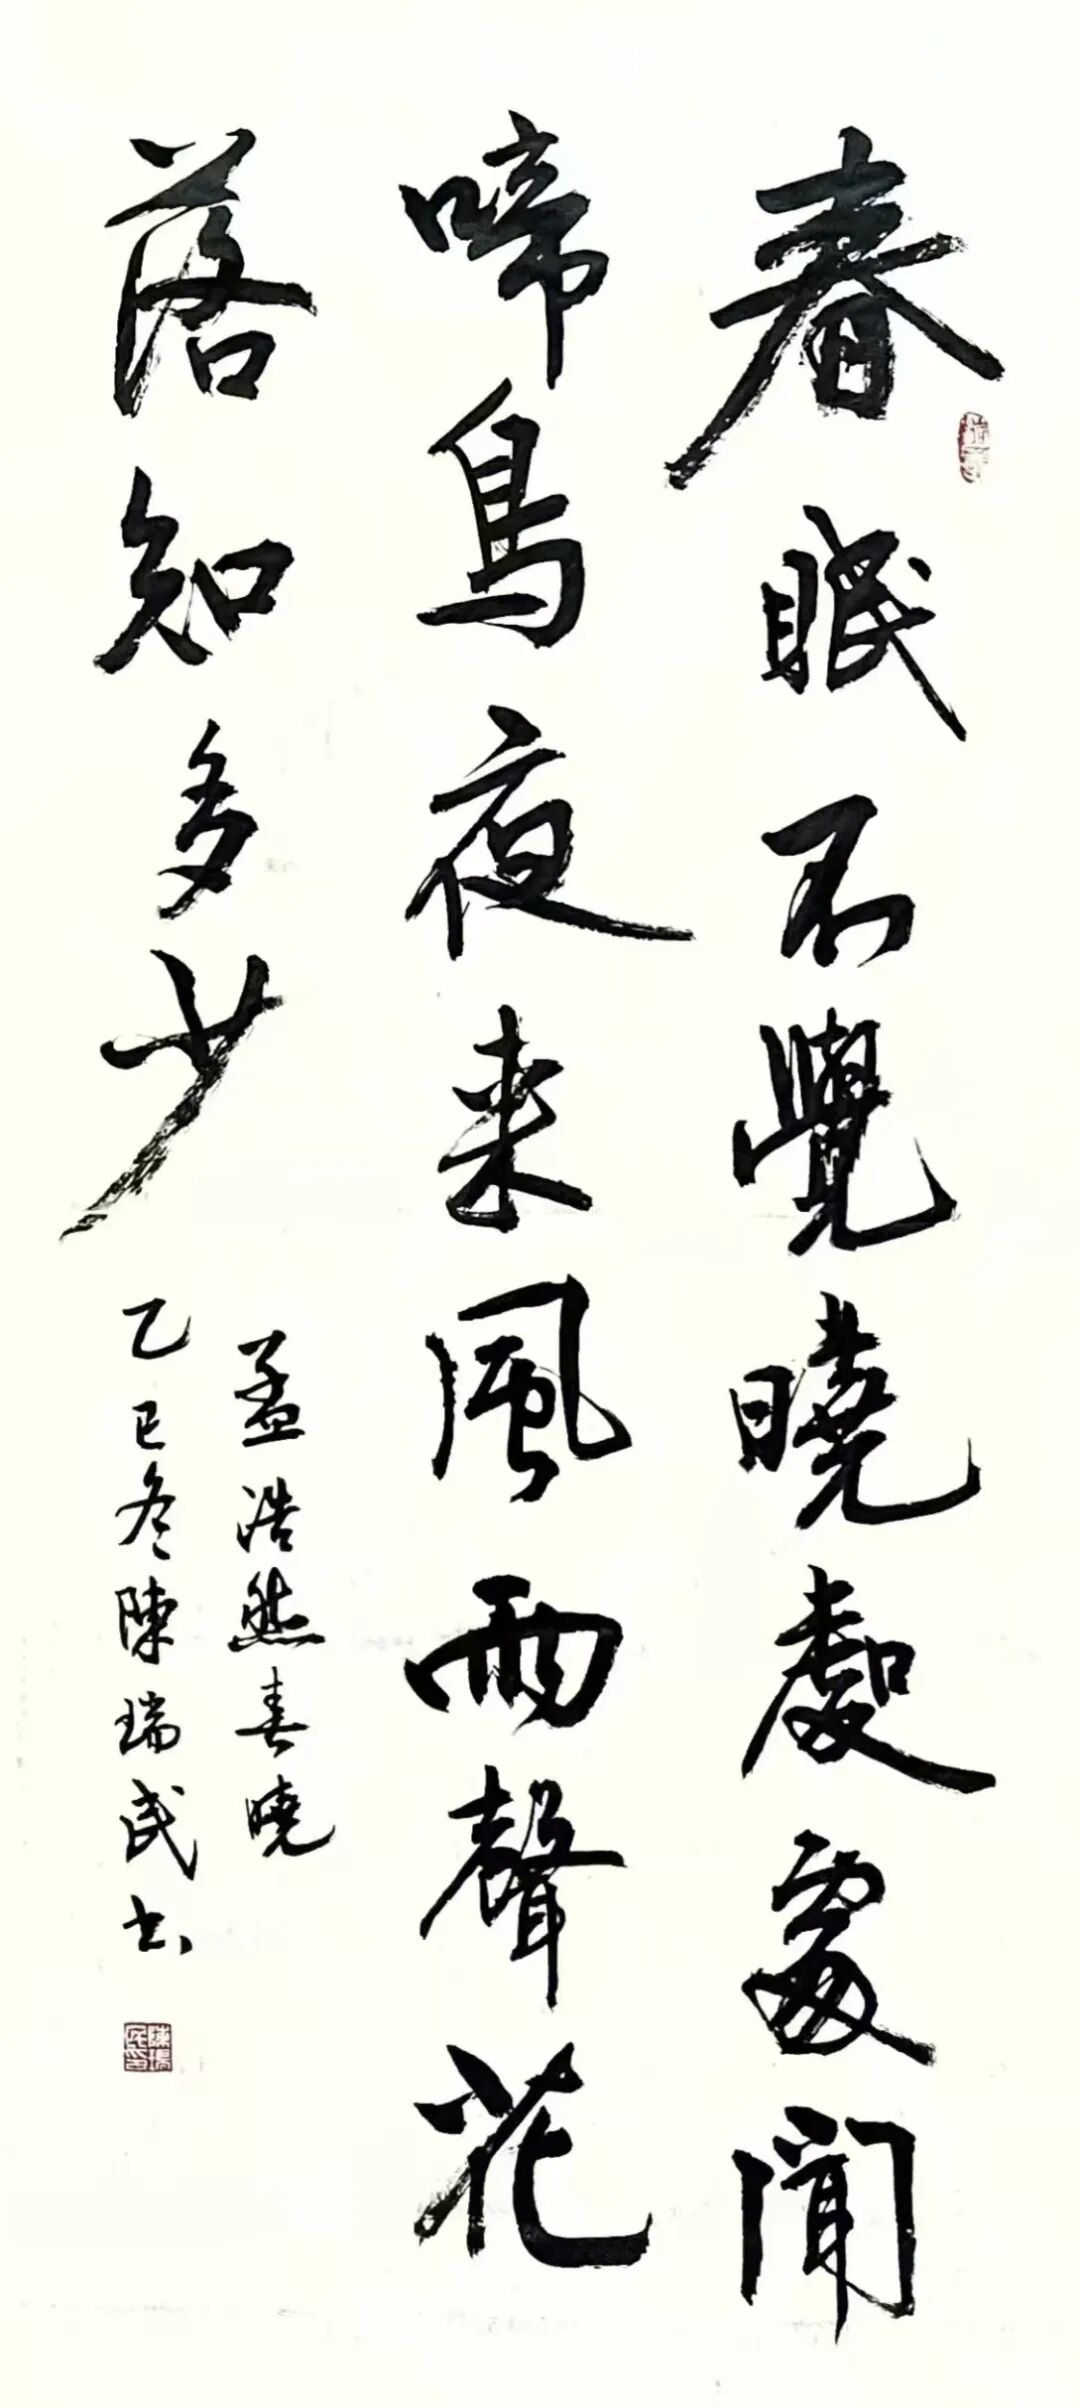 春眠不覺曉處處聞
啼鳥夜来風雨聲花
落知多少
孟浩然春曉
乙巳冬陳瑞民书
陳瑞民印